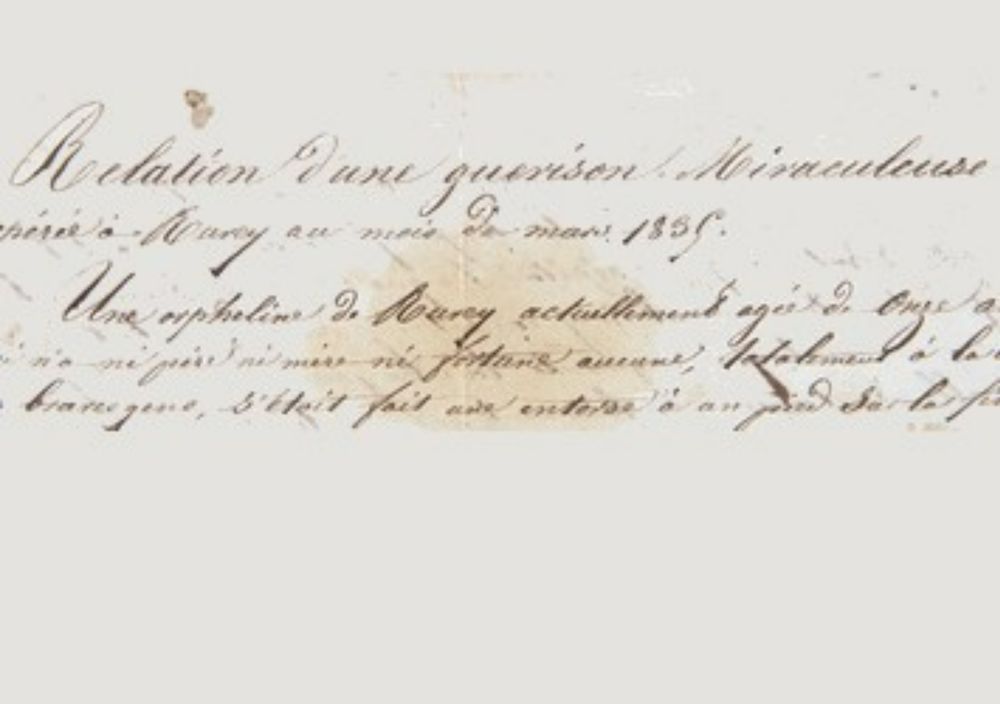 Relation d'une guerison Miraculeuse
opérée à Rarey au mois de mars 1835.
Une orpheline de Rarey actuellement agée de Onze a
n'a ni père ni mère ni fortune aucune, totalement à la
braves gens, s'étoit fait une entorse à un pied Sur la